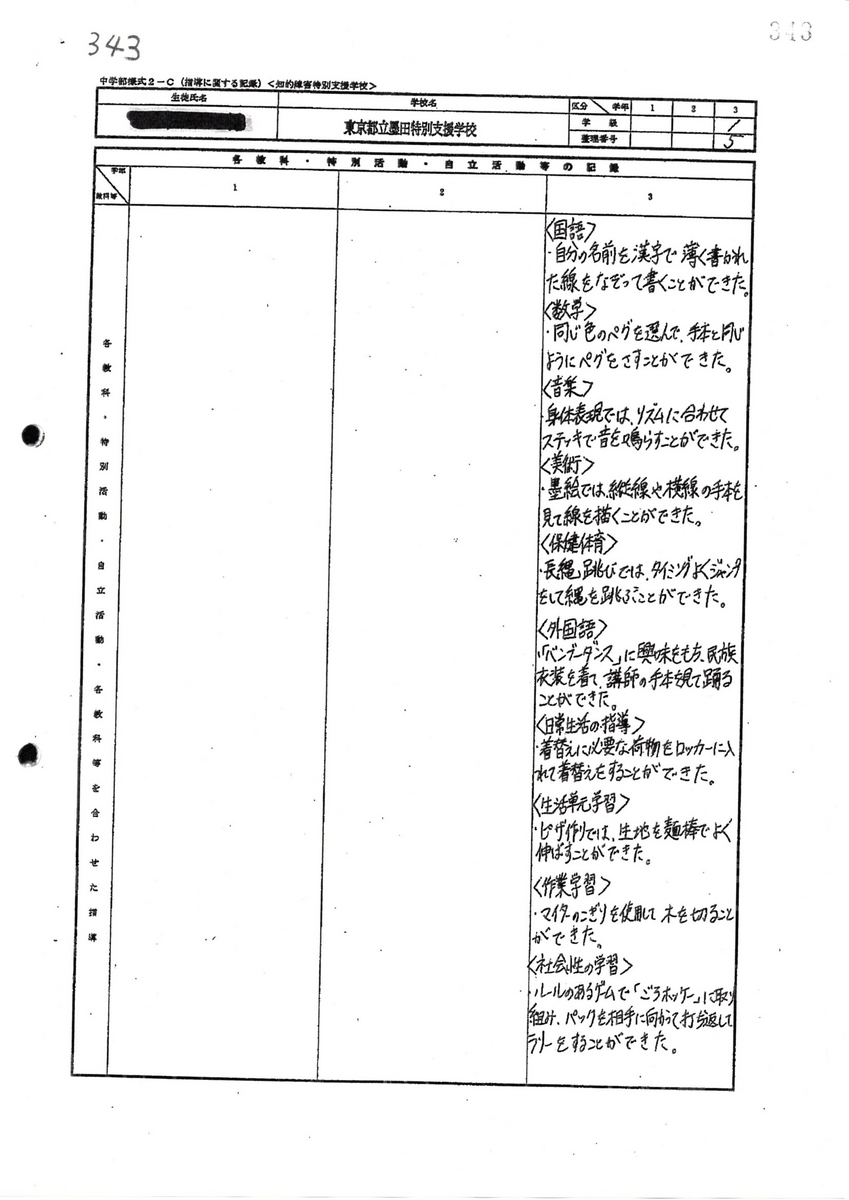 343
343
中学部様式２－Ｃ（指導に関する記録）＜知的障害特別支援学校＞
生徒氏名
学校名
区分
学年
1
2
3
東京都立墨田特別支援学校
学級
1
整理番号
5
各教科・特別活動・自立活動等の記録
学年
教科等
1
2
3
各教科・特別活動・自立活動・各教科等を合わせた指導
〈国語〉
・自分の名前を漢字で薄く書かれ
た線をなぞって書くことができた。
〈数学〉
・同じ色のペグを選んで、手本と同じ
ようにペグをさすことができた。
〈音楽〉
・身体表現では、リズムに合わせて
ステッキで音を鳴らすことができた。
〈美術〉
・墨絵では、縦線や横線の手本を
見て線を描くことができた。
〈保健体育〉
・長縄跳びでは、タイミングよくジャンプ
をして縄を跳ぶことができた。
〈外国語〉
・「バンブーダンス」に興味をもち、民族
衣装を着て、講師の手本を見て踊る
ことができた。
〈日常生活の指導〉
・着替えに必要な荷物をロッカーに入
れて着替えをすることができた。
〈生活単元学習〉
・ピザ作りでは、生地を麺棒でよく
伸ばすことができた。
〈作業学習〉
・マイターのこぎりを使用して木を切ること
ができた。
〈社会性の学習〉
・ルールのあるゲームで「ごろホッケー」に取り
組み、パックを相手に向かって打ち返して
ラリーをすることができた。